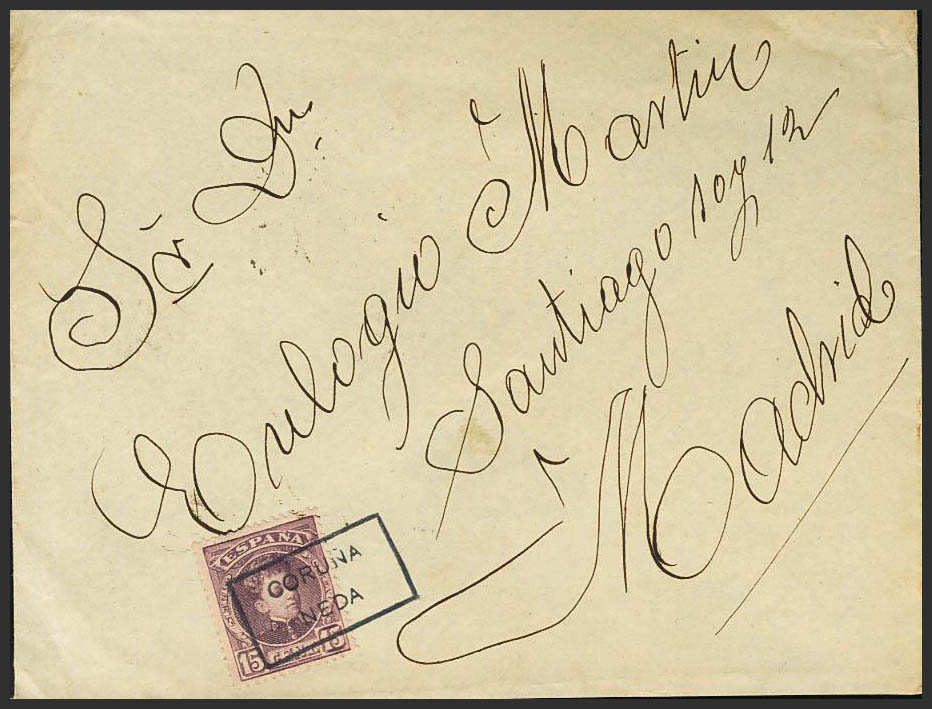 Sr Dn.
Eulogio Martin
Santiago 10 y 12
Madrid
ESPAÑA
CORUÑA
NEDA
15 15